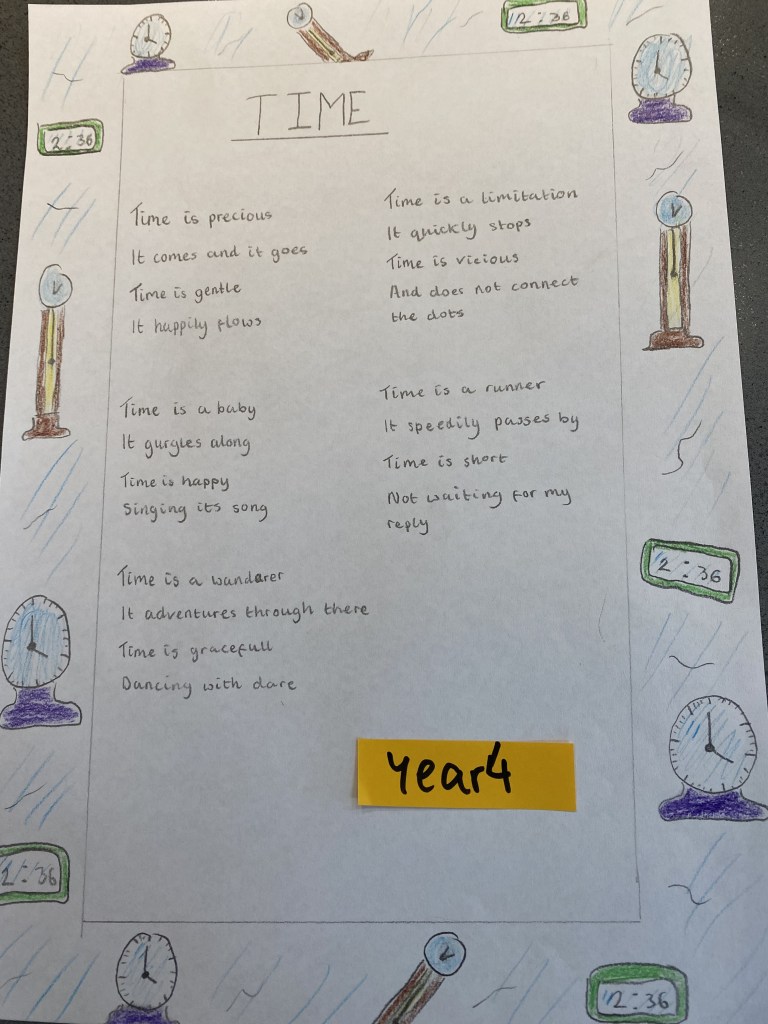 12:36
2:36
TIME
Time is precious
It comes and it goes
Time is gentle
It happily flows
Time is a baby
It gurgles along
Time is happy
Singing its song
Time is a wanderer
It adventures through there
Time is gracefull
Dancing with dare
Time is a limitation
It quickly stops
Time is vicious
And does not connect
the dots
Time is a runner
It speedily passes by
Time is short
Not waiting for my
reply
2:36
year4
2:36
12:36